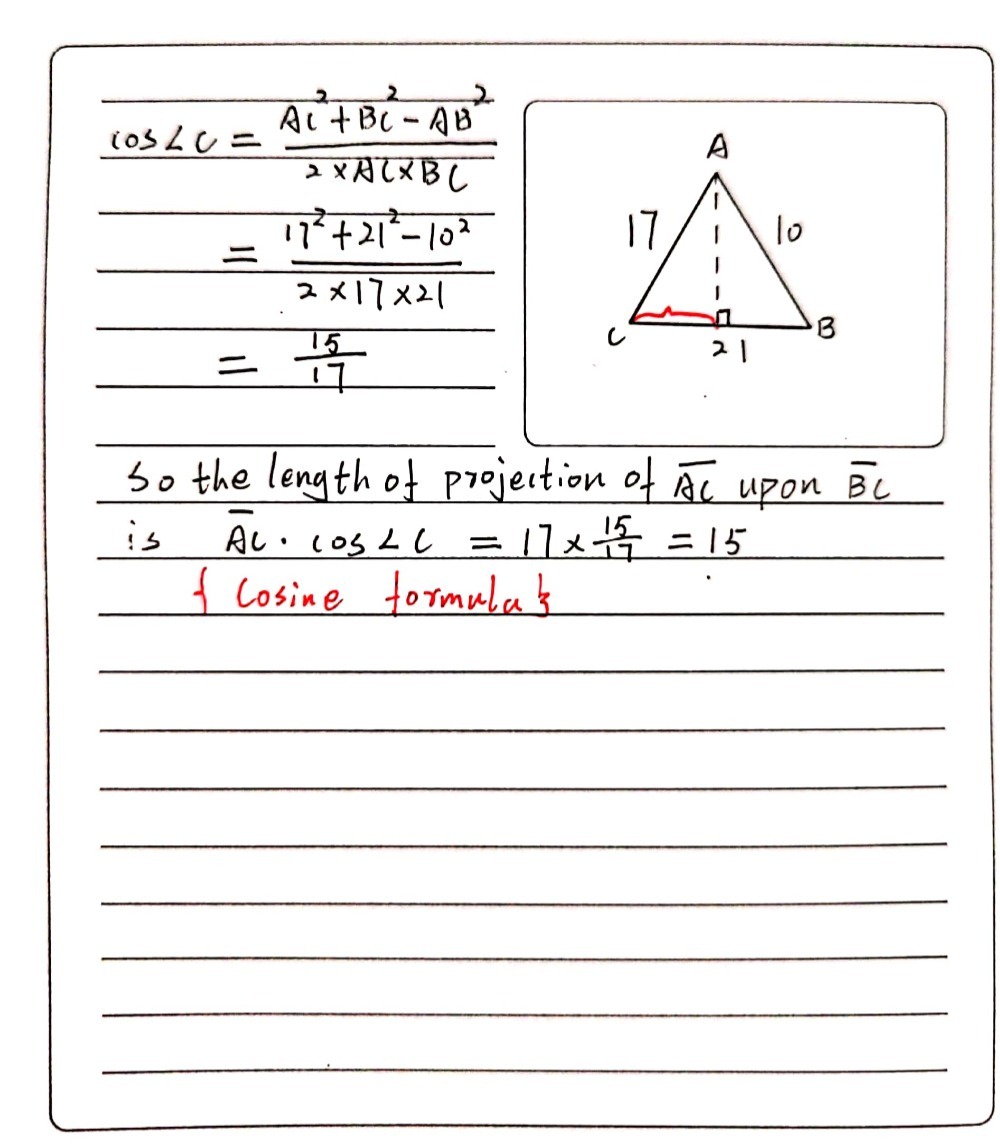 cos∠C = AC²+BC²-AB² / 2×AC×BC
= 17²+21²-10² / 2×17×21
= 15/17
A
17
10
C
B
21
So the length of projection of A̅C̅ upon B̅C̅
is A̅C̅·cos∠C = 17×15/17 = 15
{ Cosine formula }